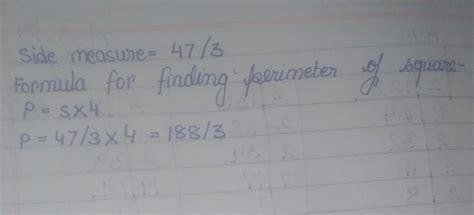 Side measure = 47/3
Formula for finding perimeter of square-
P = S×4
P = 47/3 × 4 = 188/3